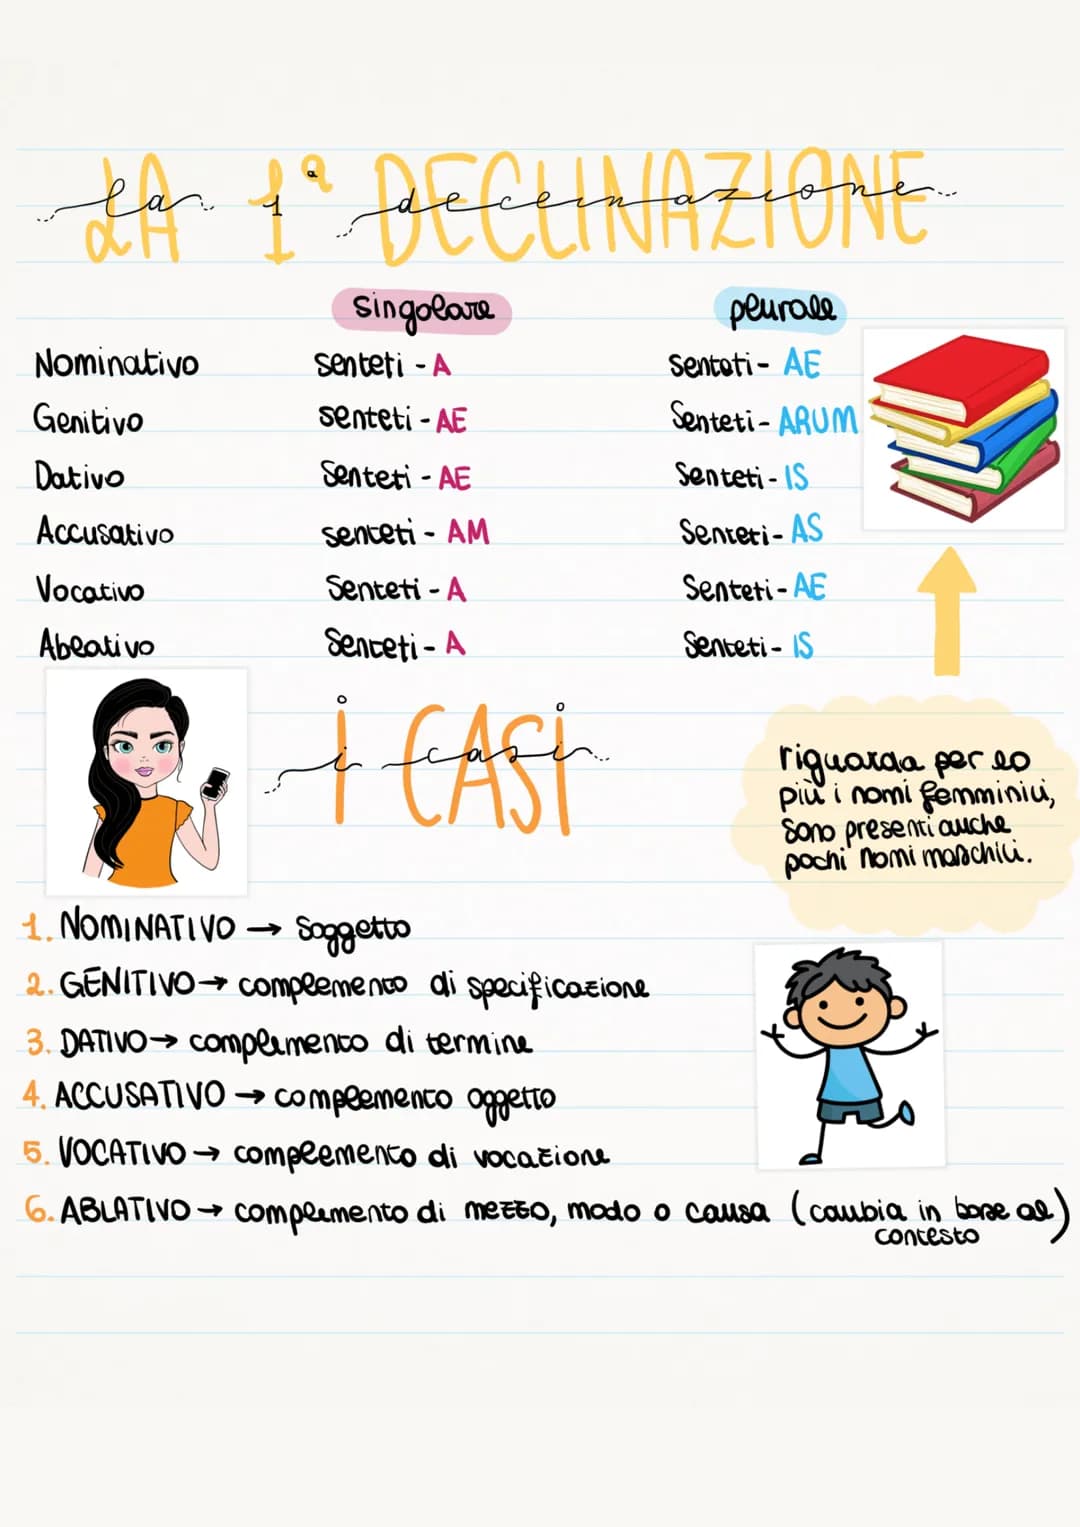 LA 1ª DECLINAZIONE
la 1ª declinazione
singolare plurale
Nominativo sententi - A sententi - AE
Genitivo sententi - AE Sententi - ARUM
Dativo Sententi - AE Sententi - IS
Accusativo sententi - AM Sententi - AS
Vocativo Sententi - A Sententi - AE
Ablativo Sententi - A Sententi - IS
i CASI
i casi
riguarda per lo
più i nomi femminili,
sono presenti anche
pochi nomi maschili.
1. NOMINATIVO → Soggetto
2. GENITIVO → complemento di specificazione
3. DATIVO → complemento di termine
4. ACCUSATIVO → complemento oggetto
5. VOCATIVO → complemento di vocazione
6. ABLATIVO → complemento di mezzo, modo o causa (cambia in base al
contesto)